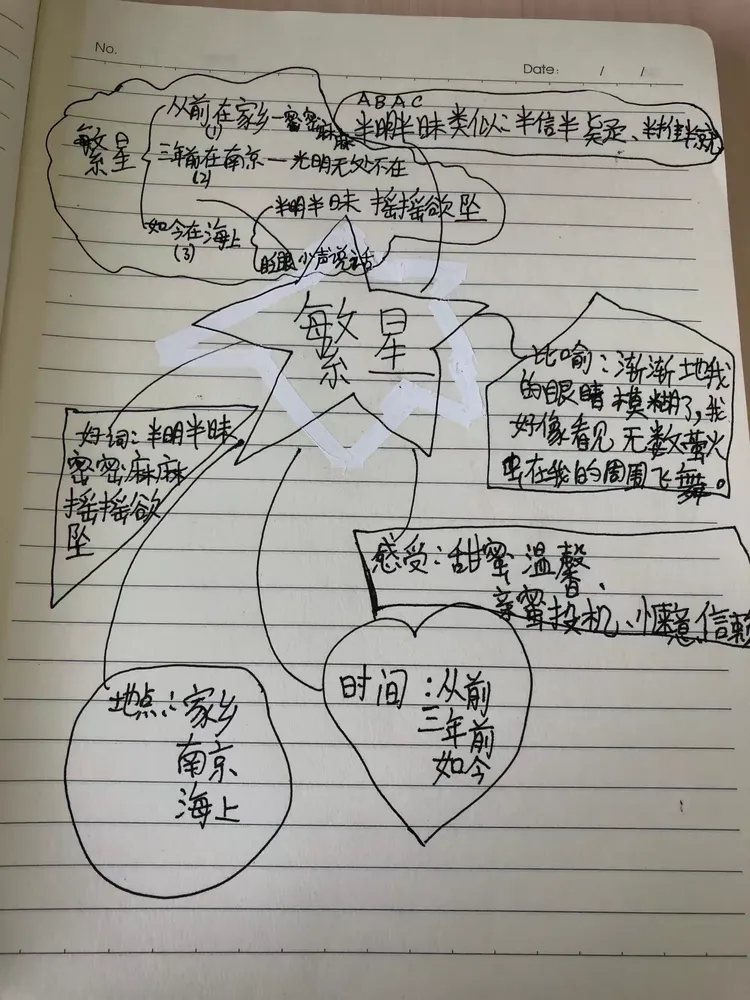 No.
Date: / /
繁星
从前在家乡一密密麻麻
(1)
三年前在南京一光明无处不在
(2)
如今在海上
(3)
半明半昧 摇摇欲坠
眨眼 小声说话
ABAC
半明半昧类似：半信半疑、半推半就
繁星
比喻：渐渐地我
的眼睛模糊了,我
好像看见无数萤火
虫在我的周围飞舞。
好词：半明半昧
密密麻麻
摇摇欲
坠
感受：甜蜜、温馨、
亲密投机、惬意、信赖
地点：家乡
南京
海上
时间：从前
三年前
如今